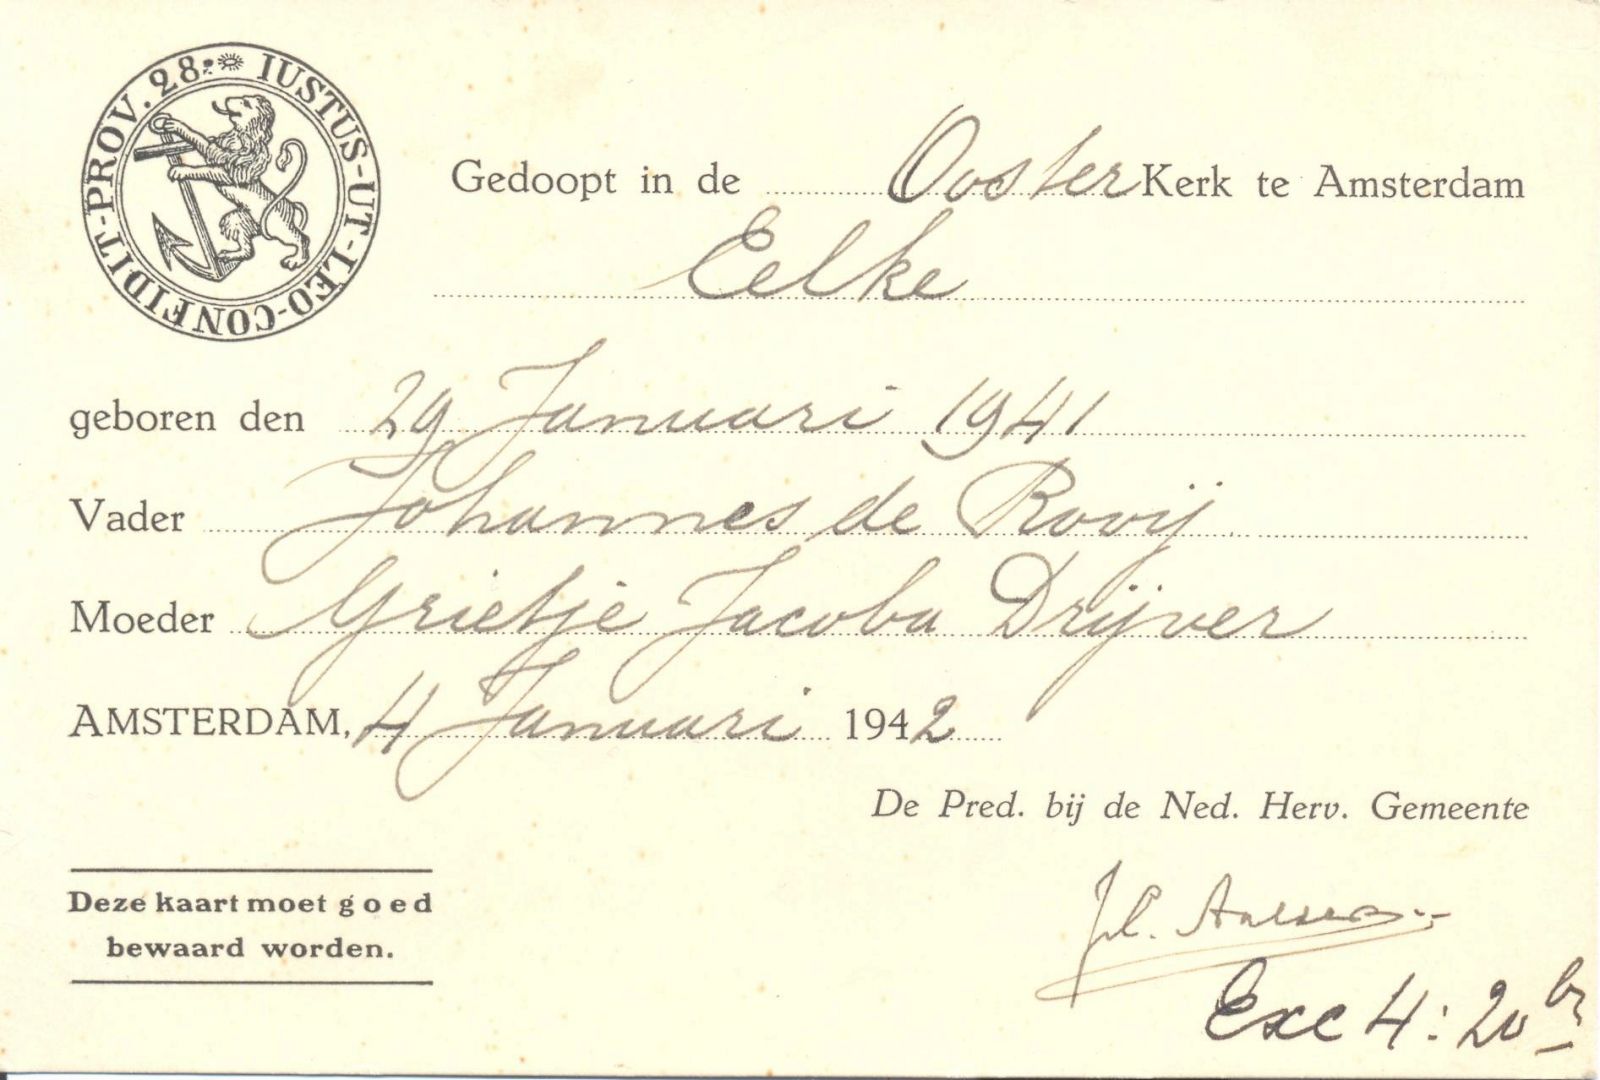 IUSTUS-UT-LEO-CONFIDIT-PROV. 28:
Gedoopt in de Ooster Kerk te Amsterdam
Eelke
geboren den 29 Januari 1941
Vader Johannes de Rooij
Moeder Grietje Jacoba Drijver
AMSTERDAM, 4 Januari 1942
De Pred. bij de Ned. Herv. Gemeente
Deze kaart moet goed
bewaard worden.
4:20